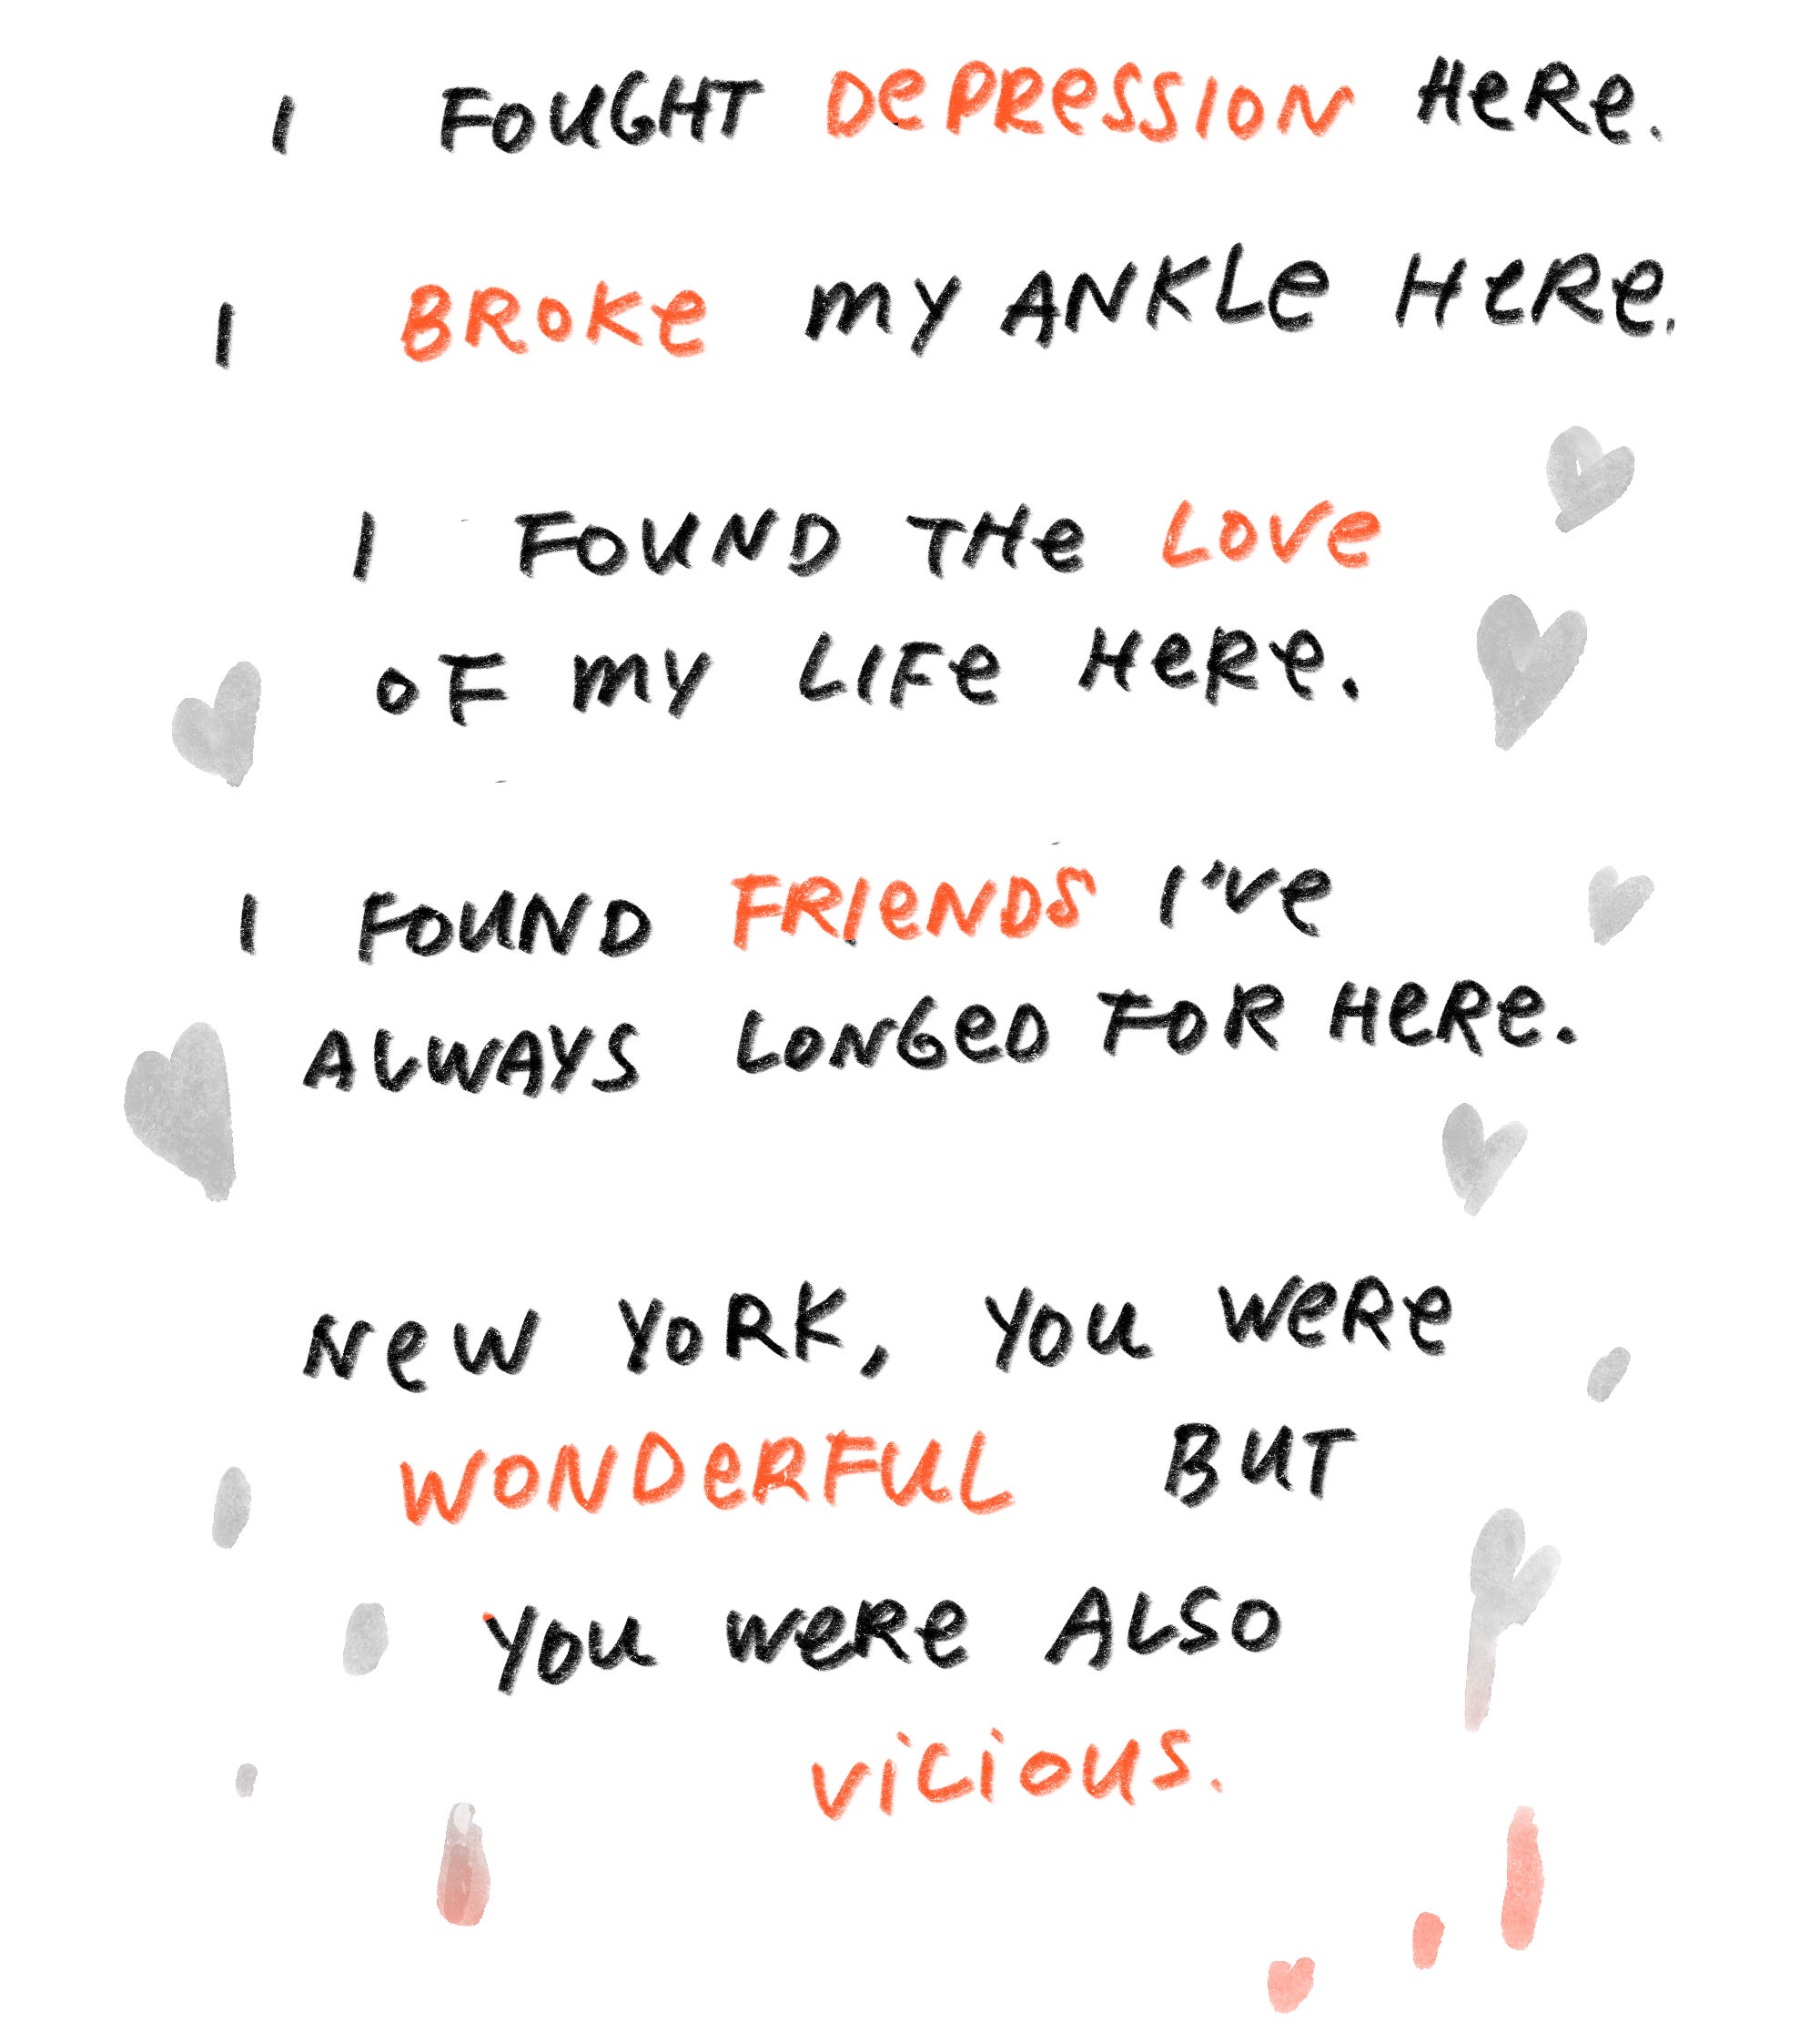 I FOUGHT DEPRESSION HERE.
I BROKE MY ANKLE HERE.
I FOUND THE LOVE
OF MY LIFE HERE.
I FOUND FRIENDS I'VE
ALWAYS LONGED FOR HERE.
NEW YORK, YOU WERE
WONDERFUL BUT
YOU WERE ALSO
VICIOUS.